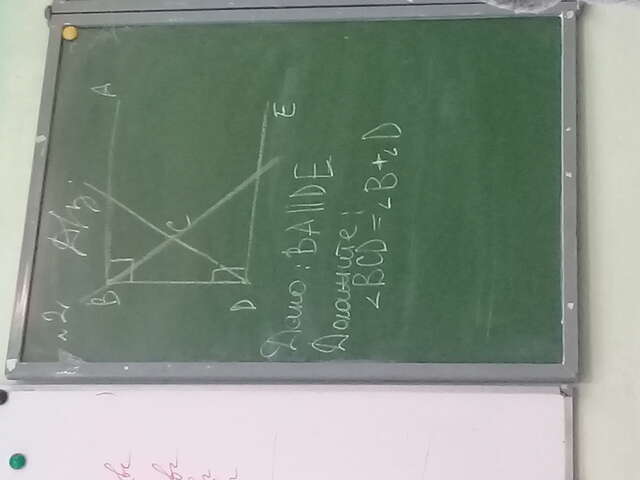 №2 Д/з.
B
A
C
D
E
Дано: BA||DE
Докажите:
∠BCD=∠B+∠D